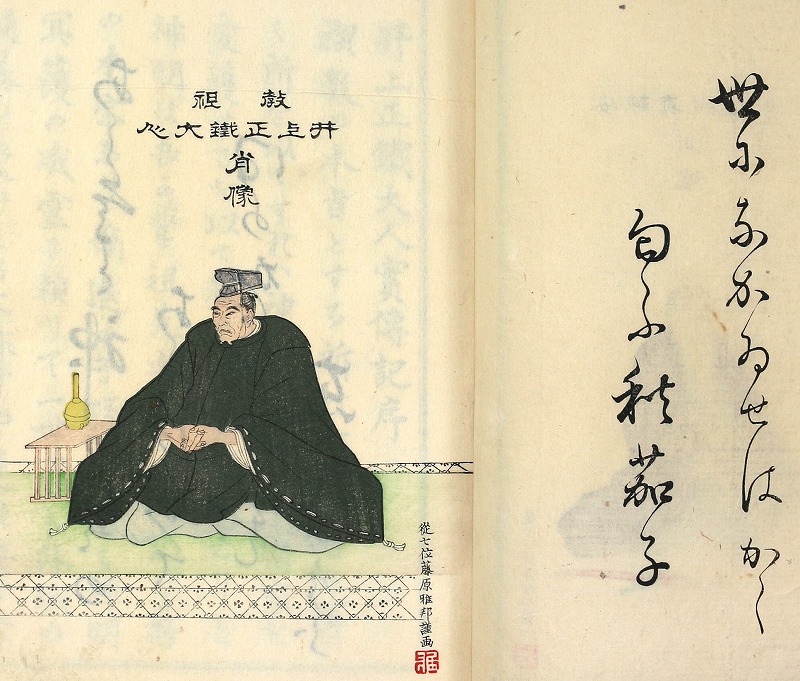 世になかゐせはかく
秋茄子
教祖
井上正鐵大人
肖像
從七位藤原雅邦謹画